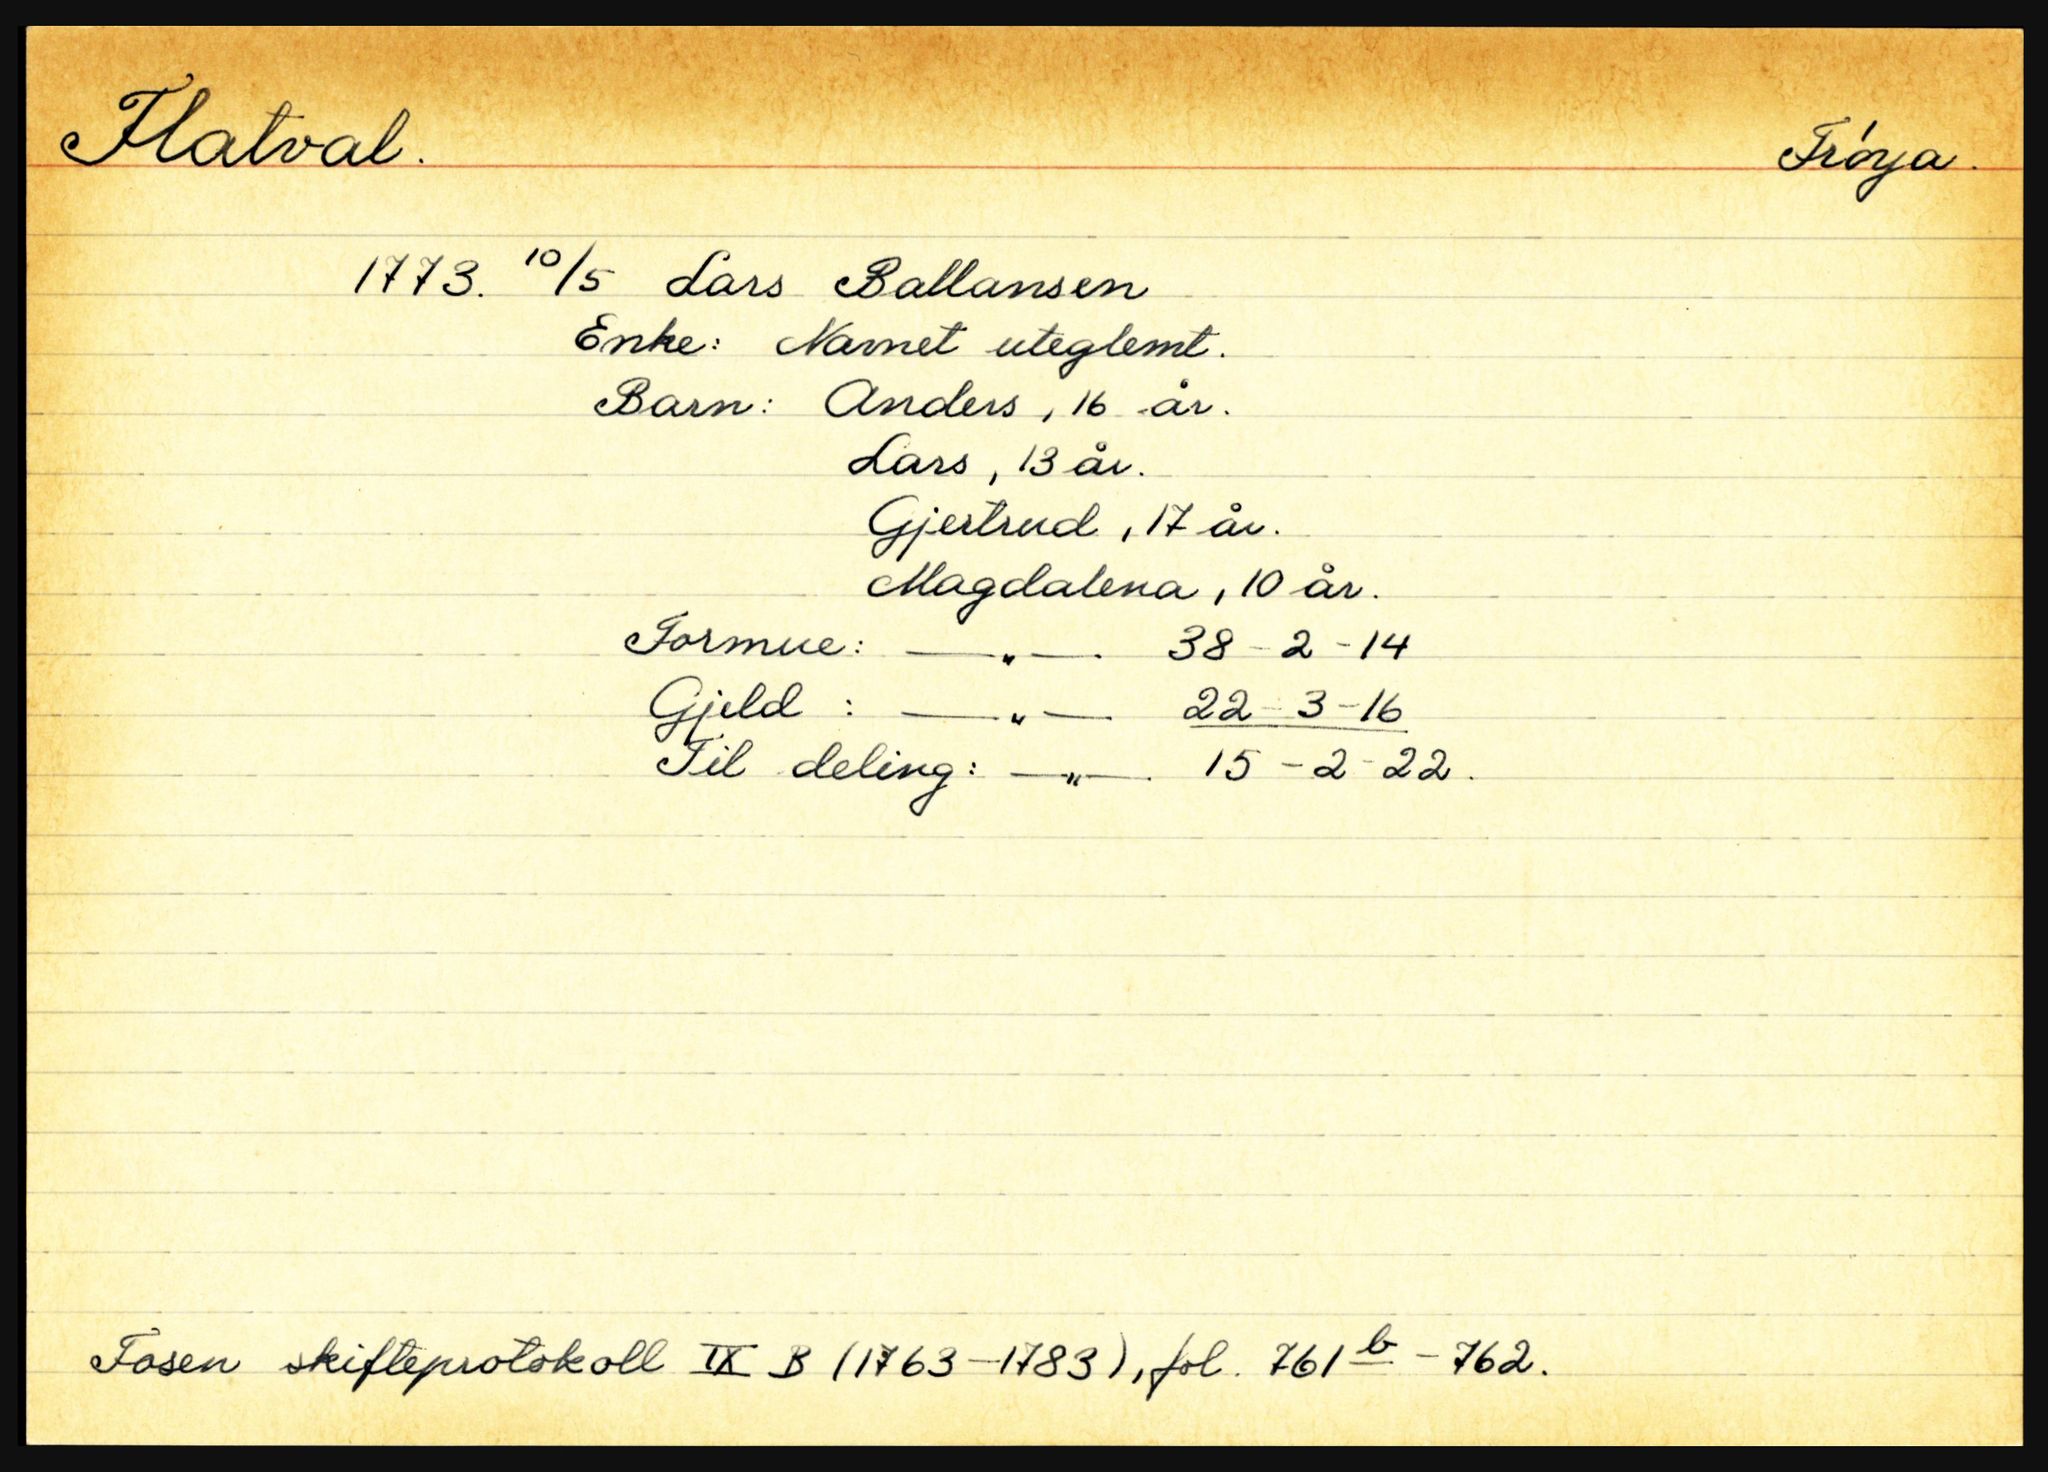 Flatval.
Frøya.
1773. 10/5 Lars Ballansen
Enke: Navnet uteglemt.
Barn: Anders, 16 år.
Lars, 13 år.
Gjertrud, 17 år.
Magdalena, 10 år.
Formue: —"— 38-2-14
Gjeld: —"— 22-3-16
Til deling: —"— 15-2-22.
Fosen skifteprotokoll IX B (1763-1783), fol. 761b-762.